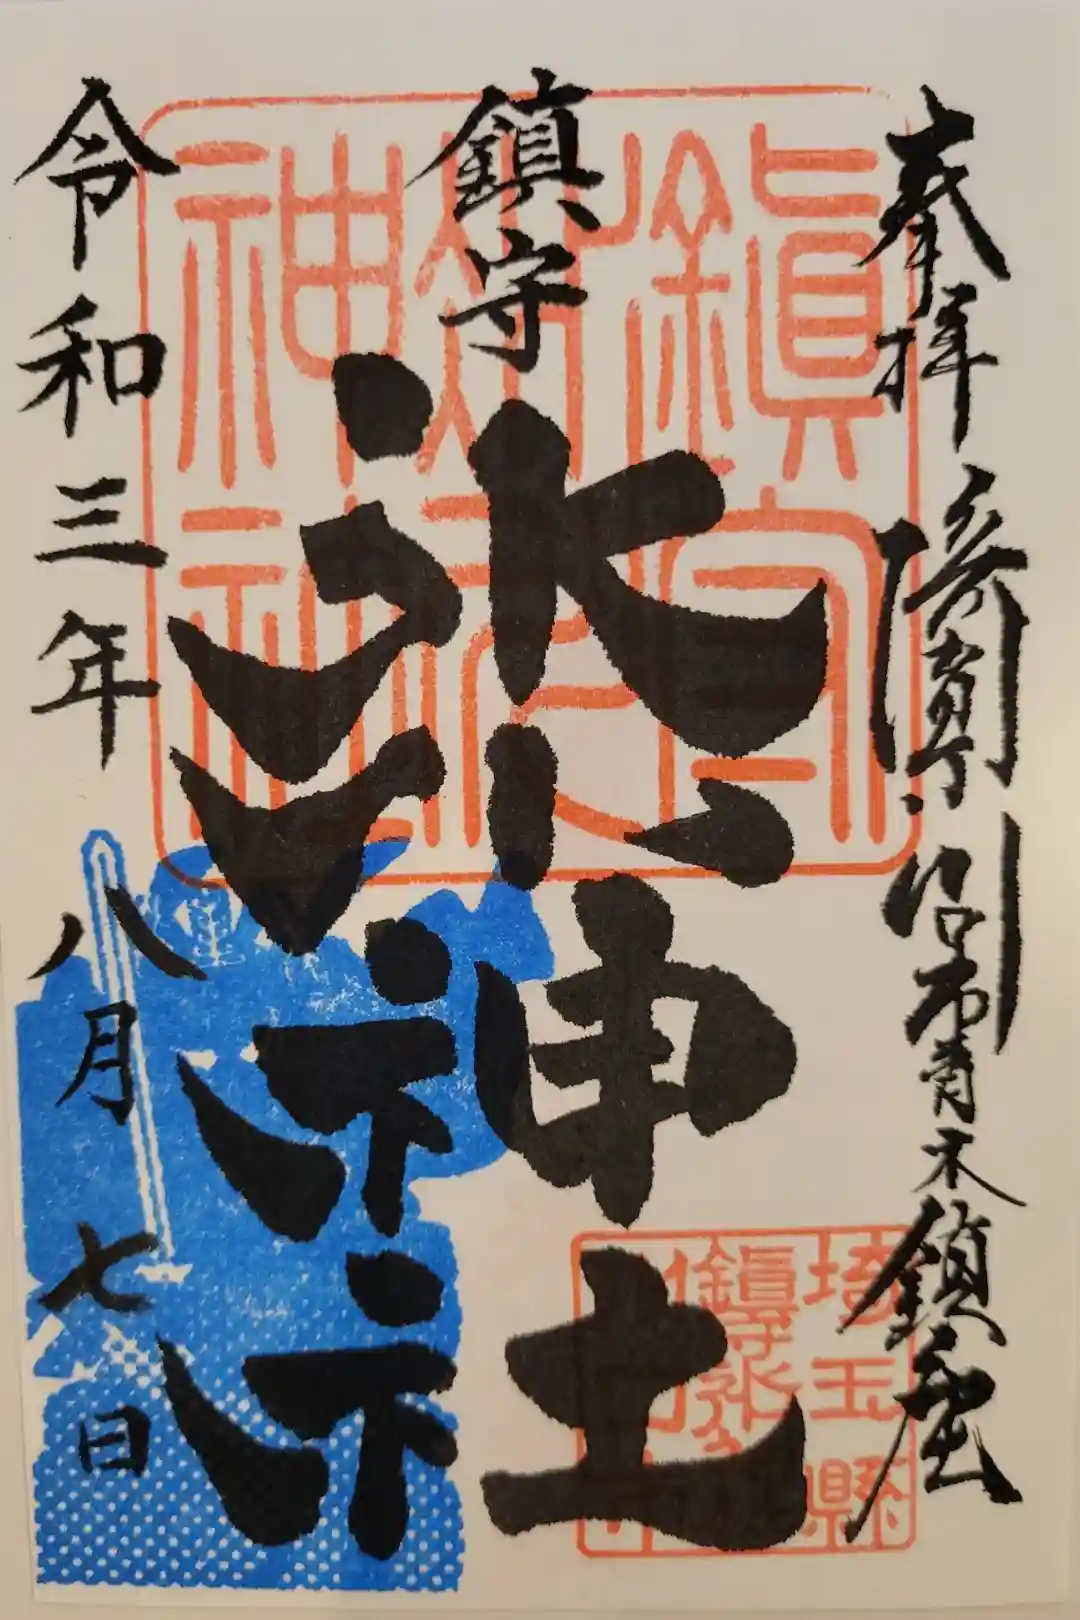 奉拝
川口市青木鎮座
鎮守
氷川神社
令和三年八月七日
鎮守氷川神社
埼玉縣
鎮守氷川